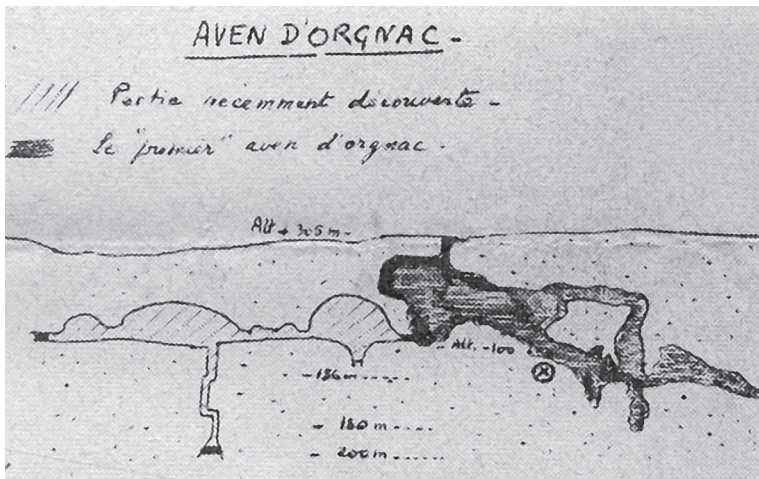 AVEN D'ORGNAC -
Partie récemment découverte -
Le "premier" aven d'orgnac -
Alt + 305 m -
- Alt. -100
- 136 m - - - -
- 180 m - - - -
- 200 m - - - -